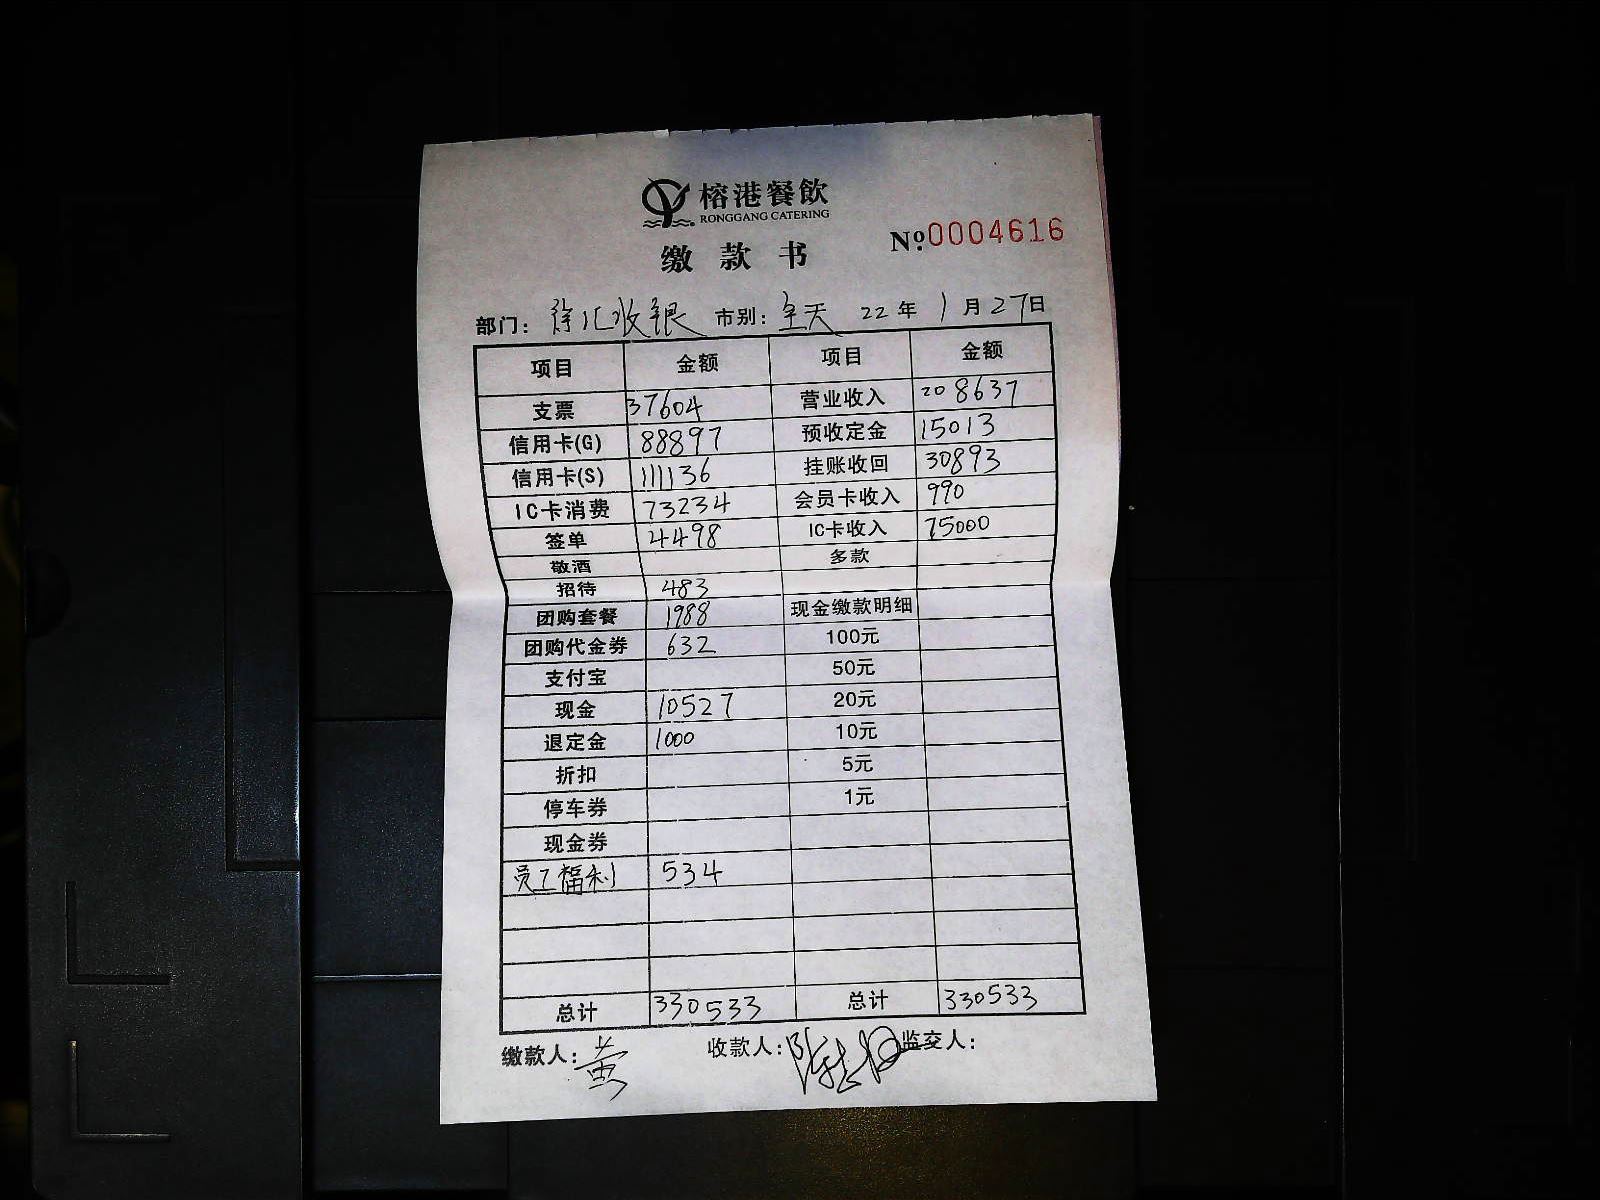 榕港餐飲
RONGGANG CATERING
缴款书
№:0004616
部门: 徐汇收银 市别: 全天 22年1月27日
项目 金额 项目 金额
支票 37604 营业收入 208637
信用卡(G) 88897 预收定金 15013
信用卡(S) 111136 挂账收回 30893
IC卡消费 73234 会员卡收入 990
签单 4498 IC卡收入 75000
敬酒 多款
招待 483
团购套餐 1988 现金缴款明细
团购代金券 632 100元
支付宝 50元
现金 10527 20元
退定金 1000 10元
折扣 5元
停车券 1元
现金券
员工福利 534
总计 330533 总计 330533
缴款人: 黄 收款人: 监交人: